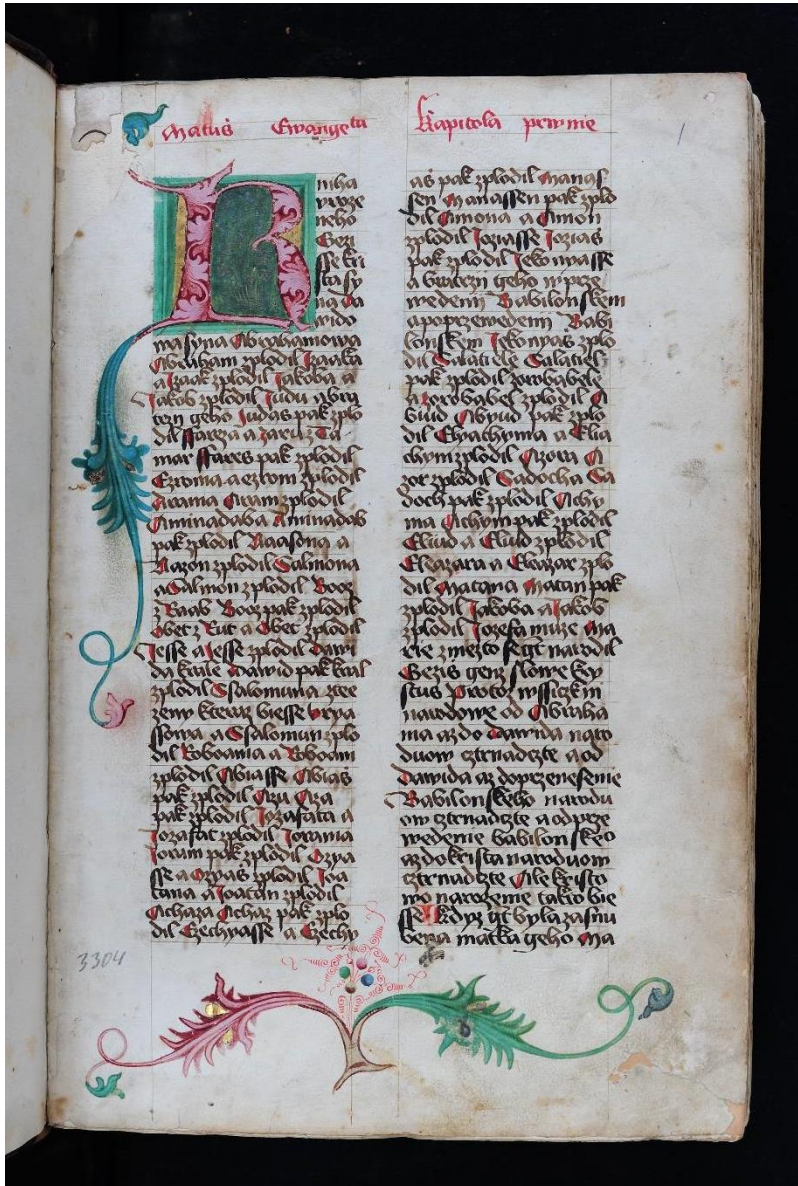 Matus Ewangeta
Kapitola prwnie
1
K
niha
rodze
neho
Gezi
sse kri
sta sy
na da
wido
wa syna Abrahamowa
Abraham zplodil Izaaka
a Izaak zplodil Jakoba a
Jakob zplodil Judu a bra
trzi geho Judas pak zplo
dil Fareza a zaru z Ta
mar ffares pak zplodil
Ezroma a ezrom zplodil
Arama Aram zplodil
Aminadaba Aminadab
pak zplodil Naasona a
Nazon zplodil Salmona
a Salmon zplodil Booz
z Raab Booz pak zplodil
Obet z Rut a Obet zplodil
Jesse a Jesse zplodil Dawi
da krale Dawid pak kral
zplodil Ssalomuna z tee
zeny kteraz biesse vrya
ssowa a Ssalomun zplo
dil Roboama a Roboam
zplodil Abiasse Abias
pak zplodil Azu Aza
pak zplodil Jozafata a
Jozafat zplodil Jorama
Joram pak zplodil Ozya
sse a Ozyas zplodil Joa
tana a Joatan zplodil
Achaza Achaz pak zplo
dil Ezechyasse a Ezechy
as pak zplodil Manas
sen Manassen pak zplo
dil Amona a Amon
zplodil Joziasse Jozias
pak zplodil Jekonyasse
a bratrzi geho w prze
wedeni Babilonskem
a po przewedeni Babi
lonskem Jekonyas zplo
dil Salatiele Salatiel
pak zplodil zorobabele
a zorobabel zplodil A
biud Abyud pak zplo
dil Elyachyma a Elia
chym zplodil Azora A
zor zplodil Sadocha Sa
doch pak zplodil Achy
ma Achym pak zplodil
Eliud a Eliud zplodil
Eleazara a Eleazar zplo
dil Matana Matan pak
zplodil Jakoba a Jakob
zplodil Jozefa muze Ma
rie z niezto segt narodil
Gezis genz slowe kry
stus Protoz wssickni
narodowe od Abraha
ma az do Dawida naro
duow cztrnadczte a od
Dawida az do przenesenie
Babilonskeho narodu
ow cztrnadczte a od prze
wedenie babilonskeo
az do krista naroduow
cztrnadczte Ale kristo
wo narozenie takto bie
sse Kdyz gt byla zasnu
bena matka geho Ma
3304